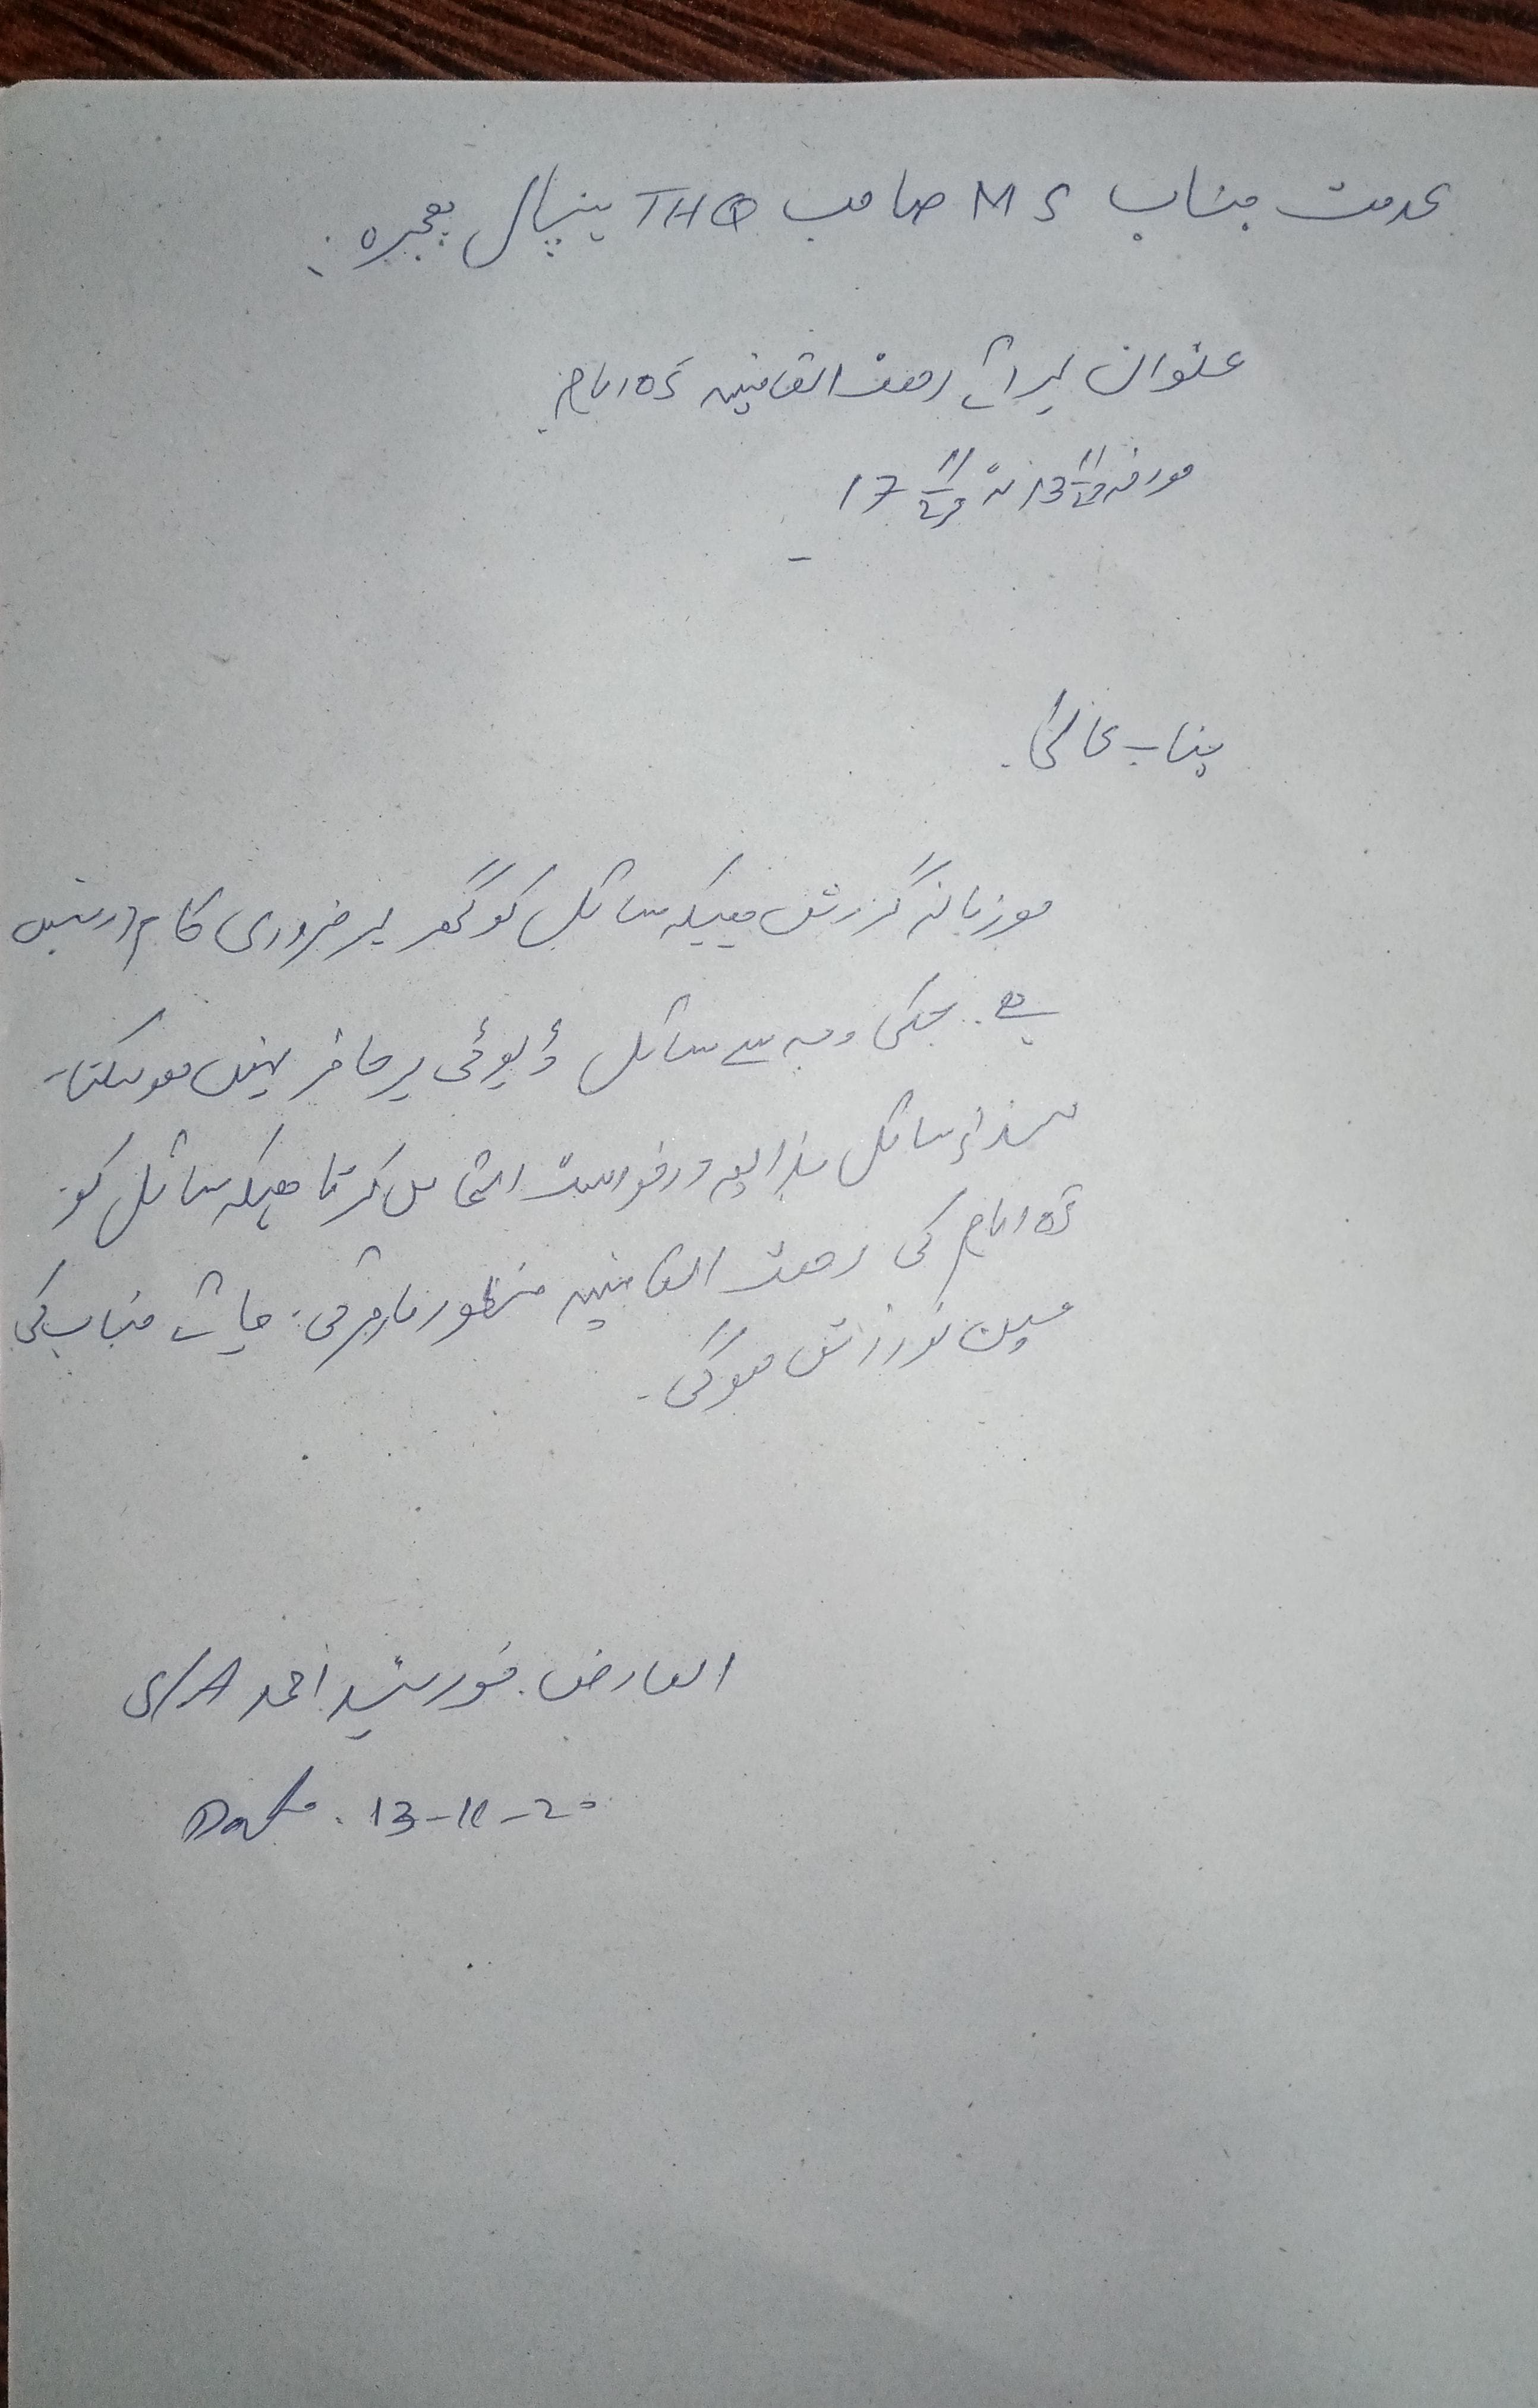 بخدمت جناب MS صاحب THQ ہسپتال ہجیرہ
عنوان برائے رخصت اتفاقیہ 05 ایام
مورخہ 13 11/20 تا 17 11/20
جناب عالی
مودبانہ گزارش ہیکہ سائل کو گھر پر ضروری کام درپیش
ہے۔ جسکی وجہ سے سائل ڈیوٹی پر حاضر نہیں ہو سکتا۔
لہذا سائل بذریعہ درخواست التماس کرتا ہیکہ سائل کو
05 ایام کی رخصت اتفاقیہ منظور فرمائی جائے جناب کی
عین نوازش ہوگی۔
العارض۔ خورشید احمد S/A
Date. 13-11-20